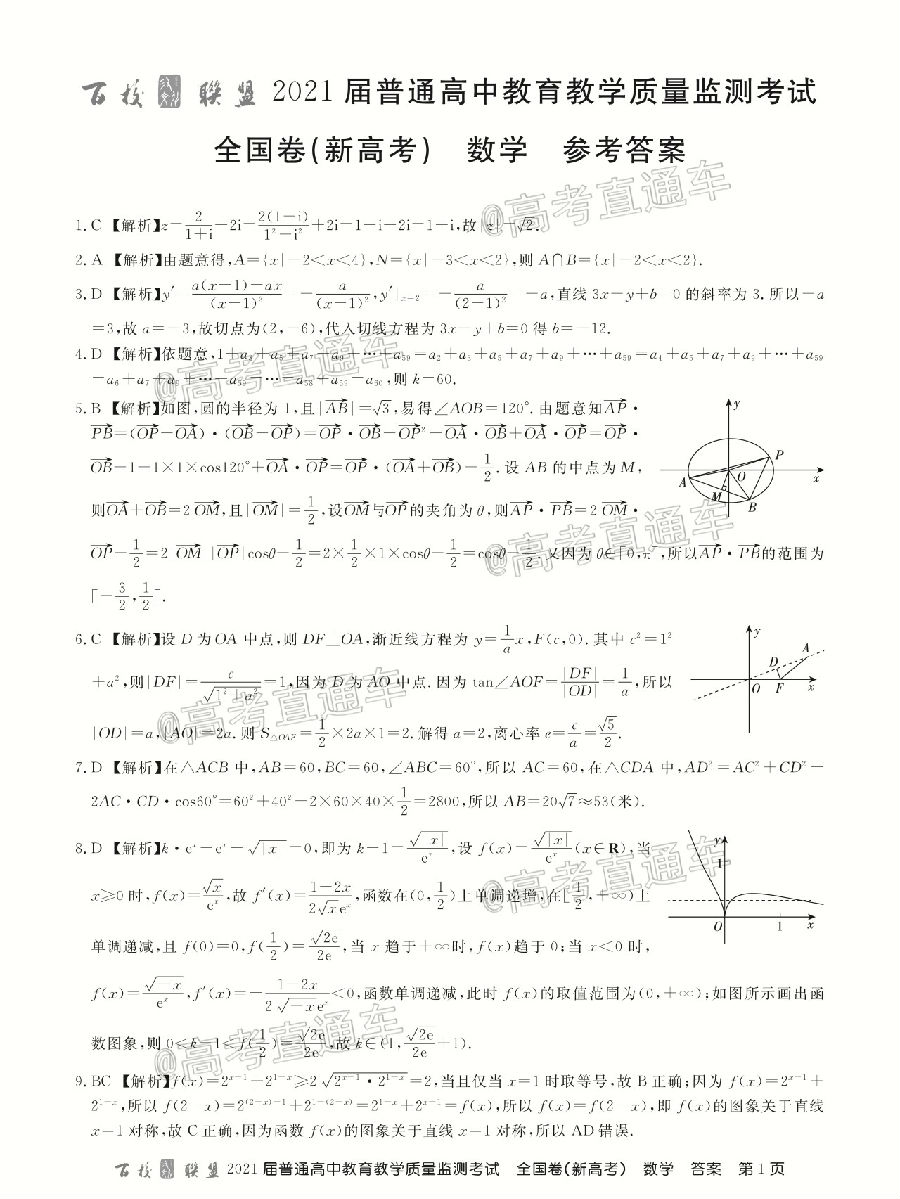 百校联盟 2021 届普通高中教育教学质量监测考试
全国卷(新高考) 数学 参考答案
@高考直通车
1. C 【解析】z=2/(1+i)+2i=2(1-i)/(1²-i²)+2i=1-i+2i=1+i,故|z|=√2.
2. A 【解析】由题意得,A={x|-2<x<4},N={x|-3<x<2},则 A∩B={x|-2<x<2}.
3. D 【解析】y′=(a(x-1)-ax)/(x-1)²=-a/(x-1)²,y′|x=2=-a/(2-1)²=-a,直线 3x-y+b=0 的斜率为 3.所以-a
=3,故 a=-3,故切点为(2,-6),代入切线方程为 3x-y+b=0 得 b=-12.
@高考直通车
4. D 【解析】依题意,1+a₃+a₅+a₇+a₉+…+a₅₉=a₂+a₃+a₅+a₇+a₉+…+a₅₉=a₄+a₅+a₇+a₉+…+a₅₉
=a₆+a₇+a₉+…+a₅₉=…=a₅₈+a₅₉=a₆₀,则 k=60.
5. B 【解析】如图,圆的半径为 1,且|AB|=√3,易得∠AOB=120°.由题意知AP·
PB=(OP-OA)·(OB-OP)=OP·OB-OP²-OA·OB+OA·OP=OP·
OB-1-1×1×cos120°+OA·OP=OP·(OA+OB)-1/2.设 AB 的中点为 M,
则OA+OB=2OM,且|OM|=1/2,设OM与OP的夹角为θ,则AP·PB=2OM·
OP-1/2=2|OM||OP|cosθ-1/2=2×1/2×1×cosθ-1/2=cosθ-1/2.又因为θ∈[0,π],所以AP·PB的范围为
[-3/2,1/2].
y
P
A
O
x
M
B
@高考直通车
6. C 【解析】设 D 为 OA 中点,则 DF⊥OA,渐近线方程为 y=1/a x,F(c,0).其中 c²=1²
+a²,则|DF|=c/√(1²+a²)=1,因为 D 为 AO 中点.因为 tan∠AOF=|DF|/|OD|=1/a,所以
|OD|=a,|AO|=2a.则 S△OAF=1/2×2a×1=2.解得 a=2,离心率 e=c/a=√5/2.
y
A
D
O
F
x
@高考直通车
7. D 【解析】在△ACB 中,AB=60,BC=60,∠ABC=60°,所以 AC=60,在△CDA 中,AD²=AC²+CD²-
2AC·CD·cos60°=60²+40²-2×60×40×1/2=2800,所以 AB=20√7≈53(米).
8. D 【解析】k·eˣ-eˣ-√|x|=0,即为 k-1=√|x|/eˣ,设 f(x)=√|x|/eˣ(x∈R),当
x≥0 时,f(x)=√x/eˣ,故 f′(x)=(1-2x)/(2√x eˣ),函数在(0,1/2)上单调递增,在[1/2,+∞)上
单调递减,且 f(0)=0,f(1/2)=√2e/2e,当 x 趋于+∞时,f(x)趋于 0;当 x<0 时,
f(x)=√-x/eˣ,f′(x)=-(1-2x)/(2√-x eˣ)<0,函数单调递减,此时 f(x)的取值范围为(0,+∞);如图所示画出函
数图象,则 0<k-1<f(1/2)=√2e/2e,故 k∈(1,√2e/2e+1).
y
1
O
1
x
@高考直通车
@高考直通车
9. BC 【解析】f(x)=2ˣ⁻¹+2¹⁻ˣ≥2√(2ˣ⁻¹·2¹⁻ˣ)=2,当且仅当 x=1 时取等号,故 B 正确;因为 f(x)=2ˣ⁻¹+
2¹⁻ˣ,所以 f(2-x)=2⁽²⁻ˣ⁾⁻¹+2¹⁻⁽²⁻ˣ⁾=2¹⁻ˣ+2ˣ⁻¹=f(x),所以 f(x)=f(2-x),即 f(x)的图象关于直线
x=1 对称,故 C 正确,因为函数 f(x)的图象关于直线 x=1 对称,所以 AD 错误.
百校联盟 2021 届普通高中教育教学质量监测考试 全国卷(新高考) 数学 答案 第 1 页